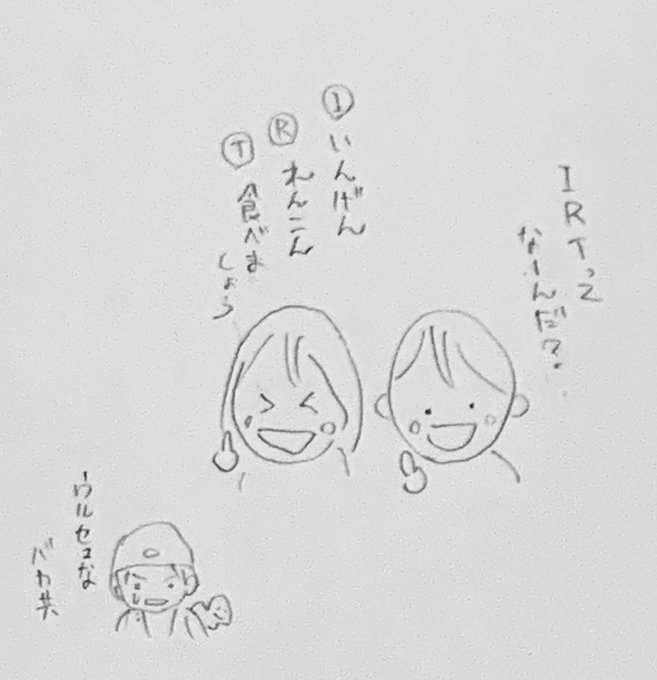 IRTって
なーんだ?
Ⓘ いんげん
Ⓡ れんこん
Ⓣ 食べま
しょう
ウルセェな
バカ共